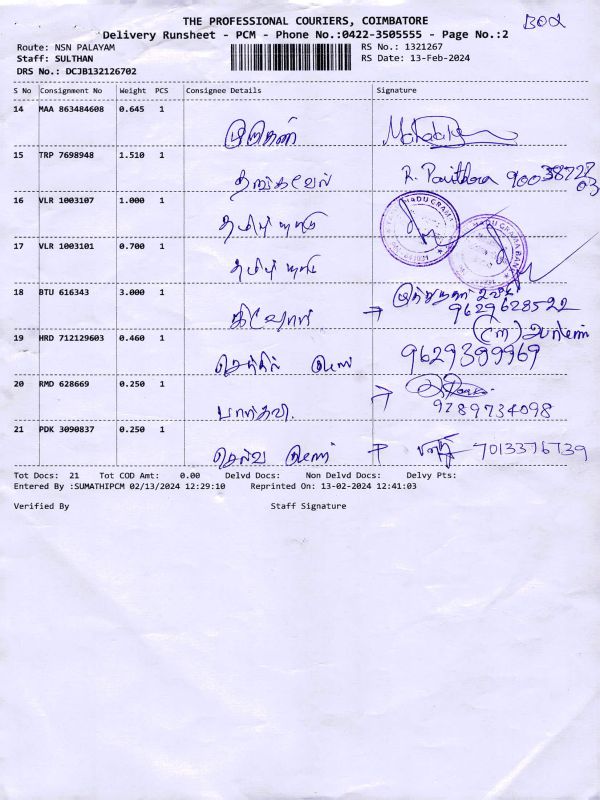 THE PROFESSIONAL COURIERS, COIMBATORE
Delivery Runsheet - PCM - Phone No.:0422-3505555 - Page No.:2
Route: NSN PALAYAM RS No.: 1321267
Staff: SULTHAN RS Date: 13-Feb-2024
DRS No.: DCJB132126702
S No Consignment No Weight PCS Consignee Details Signature
14 MAA 863484608 0.645 1
முருகன்
15 TRP 7698948 1.510 1
R. Pavithra 90038727
03
16 VLR 1003107 1.000 1
தமிழ்நாடு
17 VLR 1003101 0.700 1
தமிழ்நாடு
18 BTU 616343 3.000 1
9629628522
19 HRD 712129603 0.460 1
9629399969
20 RMD 628669 0.250 1
பார்கவி.
9789734098
21 PDK 3090837 0.250 1
7013376739
Tot Docs: 21 Tot COD Amt: 0.00 Delvd Docs: Non Delvd Docs: Delvy Pts:
Entered By :SUMATHIPCM 02/13/2024 12:29:10 Reprinted On: 13-02-2024 12:41:03
Verified By Staff Signature